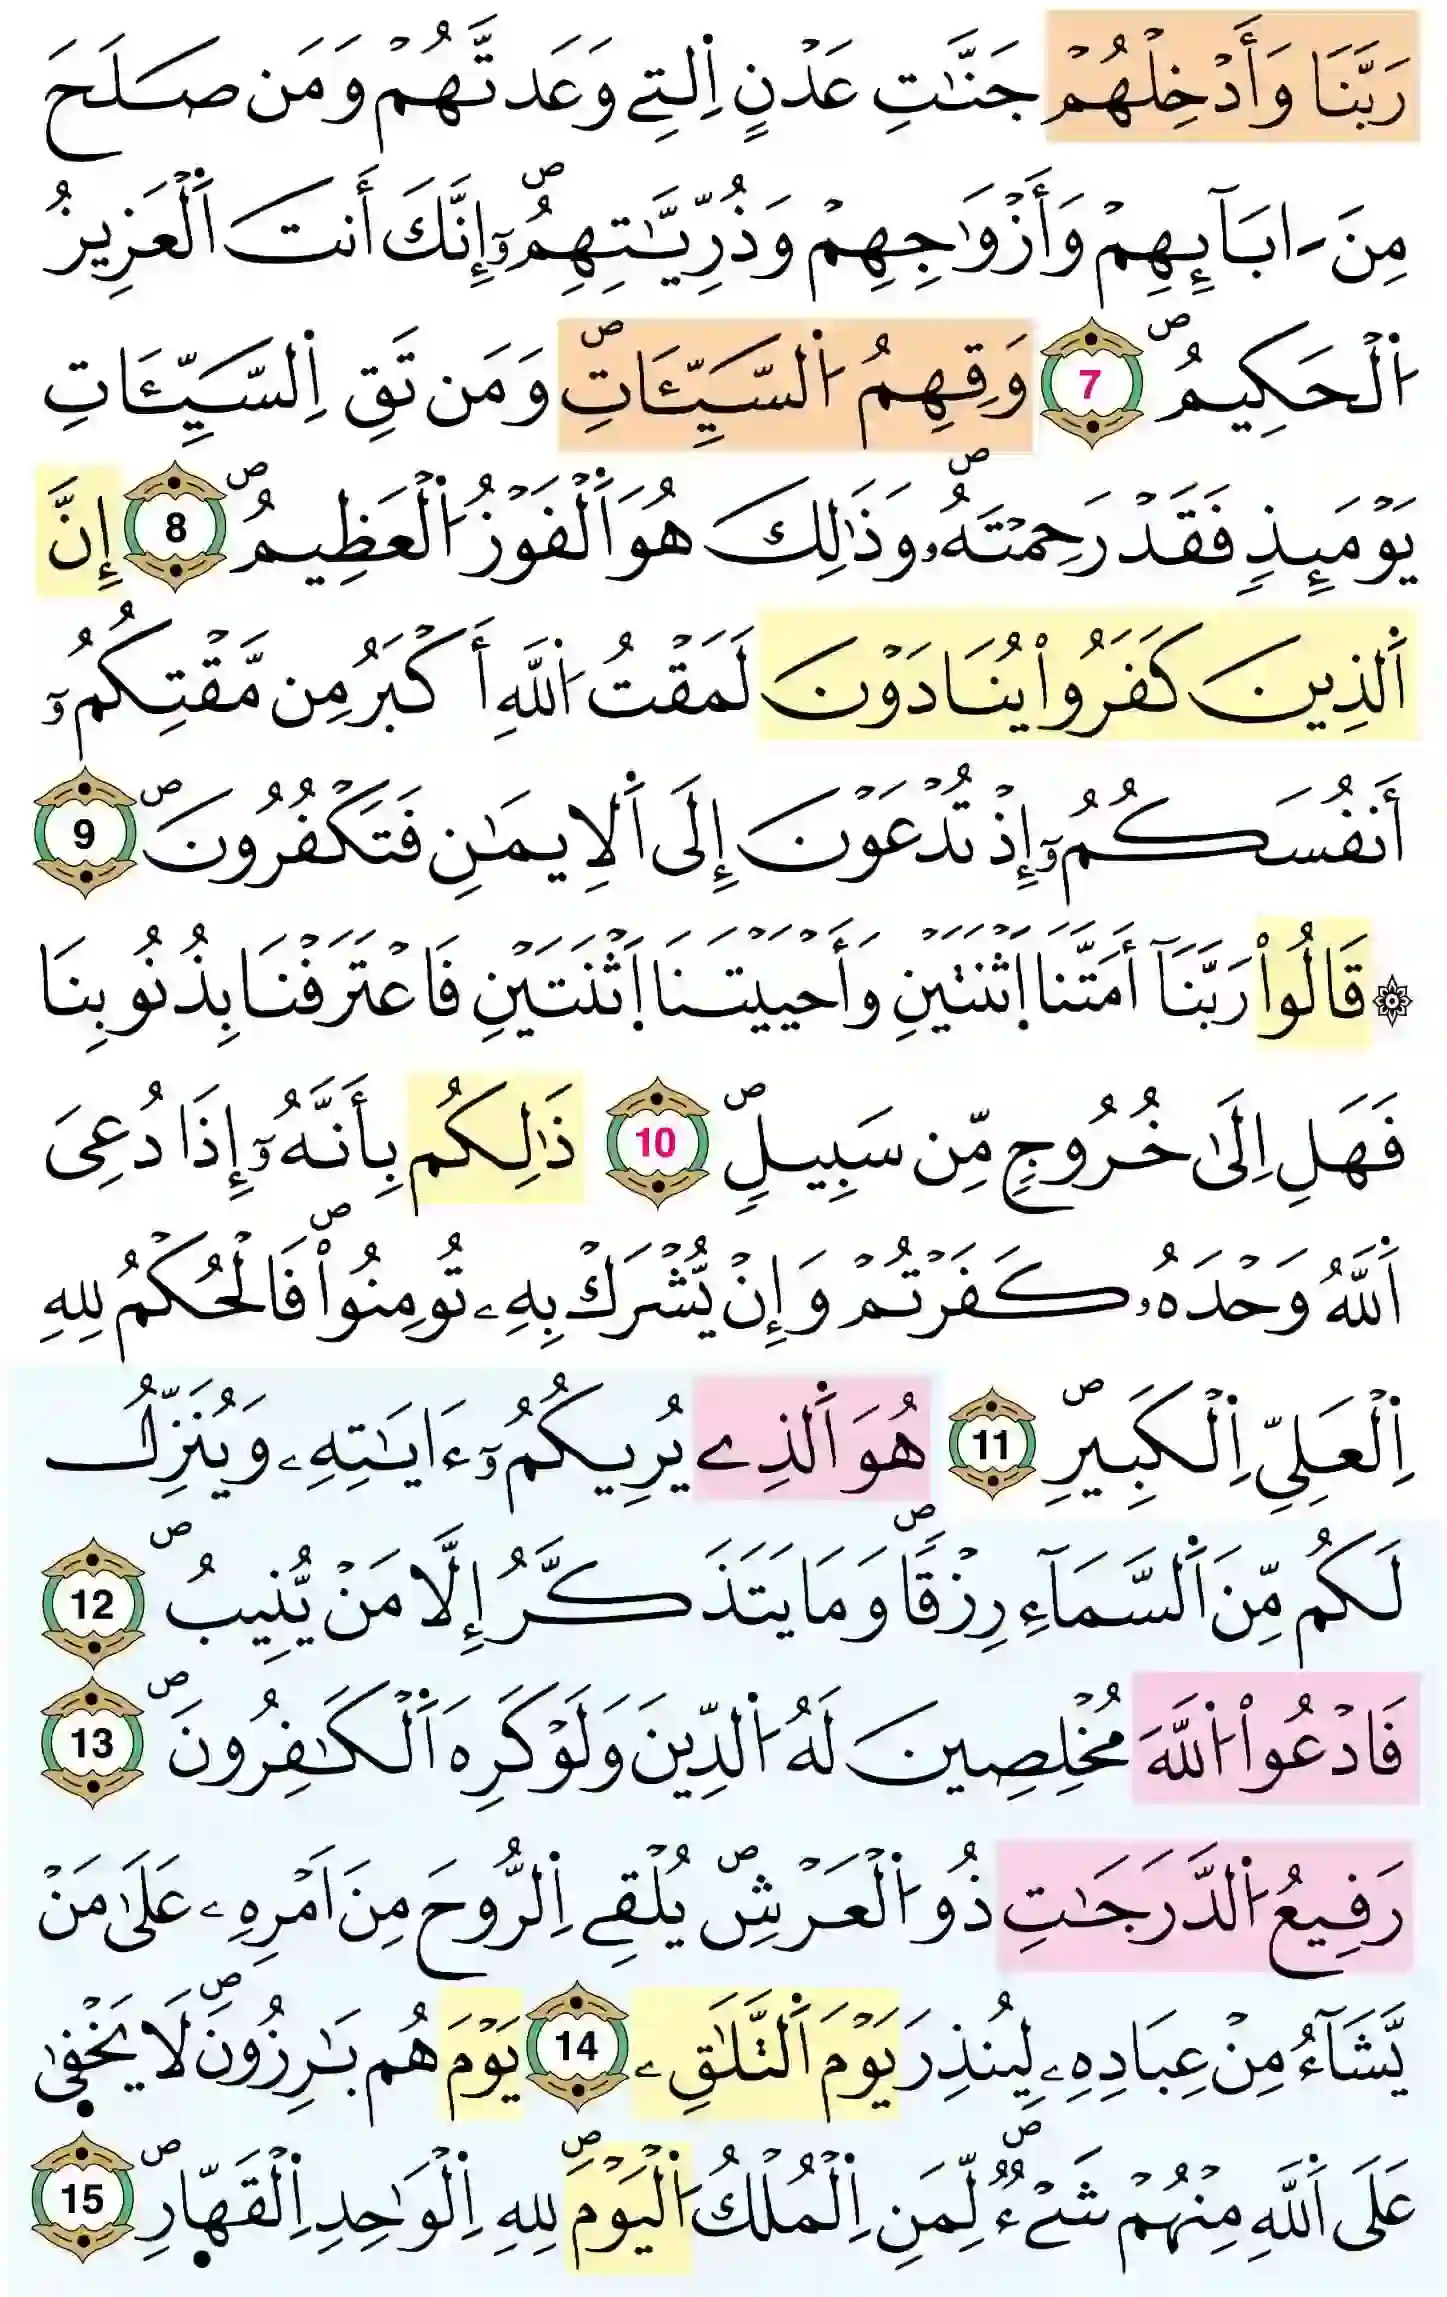 رَبَّنَا وَأَدْخِلْهُمْ جَنَّٰتِ عَدْنٍ اِلتِے وَعَدتَّهُمْ وَمَن صَلَحَ
مِنَ ـ اٰبَآئِهِمْ وَأَزْوَٰجِهِمْ وَذُرِّيَّٰتِهِمُۥٓۖ إِنَّكَ أَنتَ اَ۬لْعَزِيزُ
اُ۬لْحَكِيمُۖ 7 وَقِهِمُ اُ۬لسَّيِّـَٔاتِۖ وَمَن تَقِ اِ۬لسَّيِّـَٔاتِ
يَوْمَئِذٖ فَقَدْ رَحِمْتَهُۥۖ وَذَٰلِكَ هُوَ اَ۬لْفَوْزُ اُ۬لْعَظِيمُۖ 8 إِنَّ
اَ۬لذِينَ كَفَرُواْ يُنَادَوْنَ لَمَقْتُ اُ۬للَّهِ أَكْبَرُ مِن مَّقْتِكُمُۥٓ
أَنفُسَكُمُۥٓ إِذْ تُدْعَوْنَ إِلَى اَ۬لِايمَٰنِ فَتَكْفُرُونَۖ 9
۞ قَالُواْ رَبَّنَآ أَمَتَّنَا اَ۪ثْنَتَيْنِ وَأَحْيَيْتَنَا اَ۪ثْنَتَيْنِ فَاعْتَرَفْنَا بِذُنُوبِنَا
فَهَلِ اِلَىٰ خُرُوجٖ مِّن سَبِيلٖۖ 10 ذَٰلِكُم بِأَنَّهُۥٓ إِذَا دُعِيَ
اَ۬للَّهُ وَحْدَهُۥ كَفَرْتُمْ وَإِنْ يُّشْرَكْ بِهِۦ تُومِنُواْۖ فَالْحُكْمُ لِلهِ
اِ۬لْعَلِيِّ اِ۬لْكَبِيرِۖ 11 هُوَ اَ۬لذِے يُرِيكُمُۥٓ ءَايَٰتِهِۦ وَيُنَزِّلُ
لَكُم مِّنَ اَ۬لسَّمَآءِ رِزْقاٗۖ وَمَا يَتَذَكَّرُ إِلَّا مَنْ يُّنِيبُۖ 12
فَادْعُواْ اُ۬للَّهَ مُخْلِصِينَ لَهُ اُ۬لدِّينَ وَلَوْ كَرِهَ اَ۬لْكَٰفِرُونَۖ 13
رَفِيعُ اُ۬لدَّرَجَٰتِ ذُو اُ۬لْعَرْشِۖ يُلْقِے اِ۬لرُّوحَ مِنَ اَمْرِهِۦ عَلَىٰ مَنْ
يَّشَآءُ مِنْ عِبَادِهِۦ لِيُنذِرَ يَوْمَ اَ۬لتَّلَٰقِۦ 14 يَوْمَ هُم بَٰرِزُونَۖ لَا يَخْف۪ىٰ
عَلَى اَ۬للَّهِ مِنْهُمْ شَےْءٞۖ لِّمَنِ اِ۬لْمُلْكُ اُ۬لْيَوْمَۖ لِلهِ اِ۬لْوَٰحِدِ اِ۬لْقَهّ۪ارِۖ 15